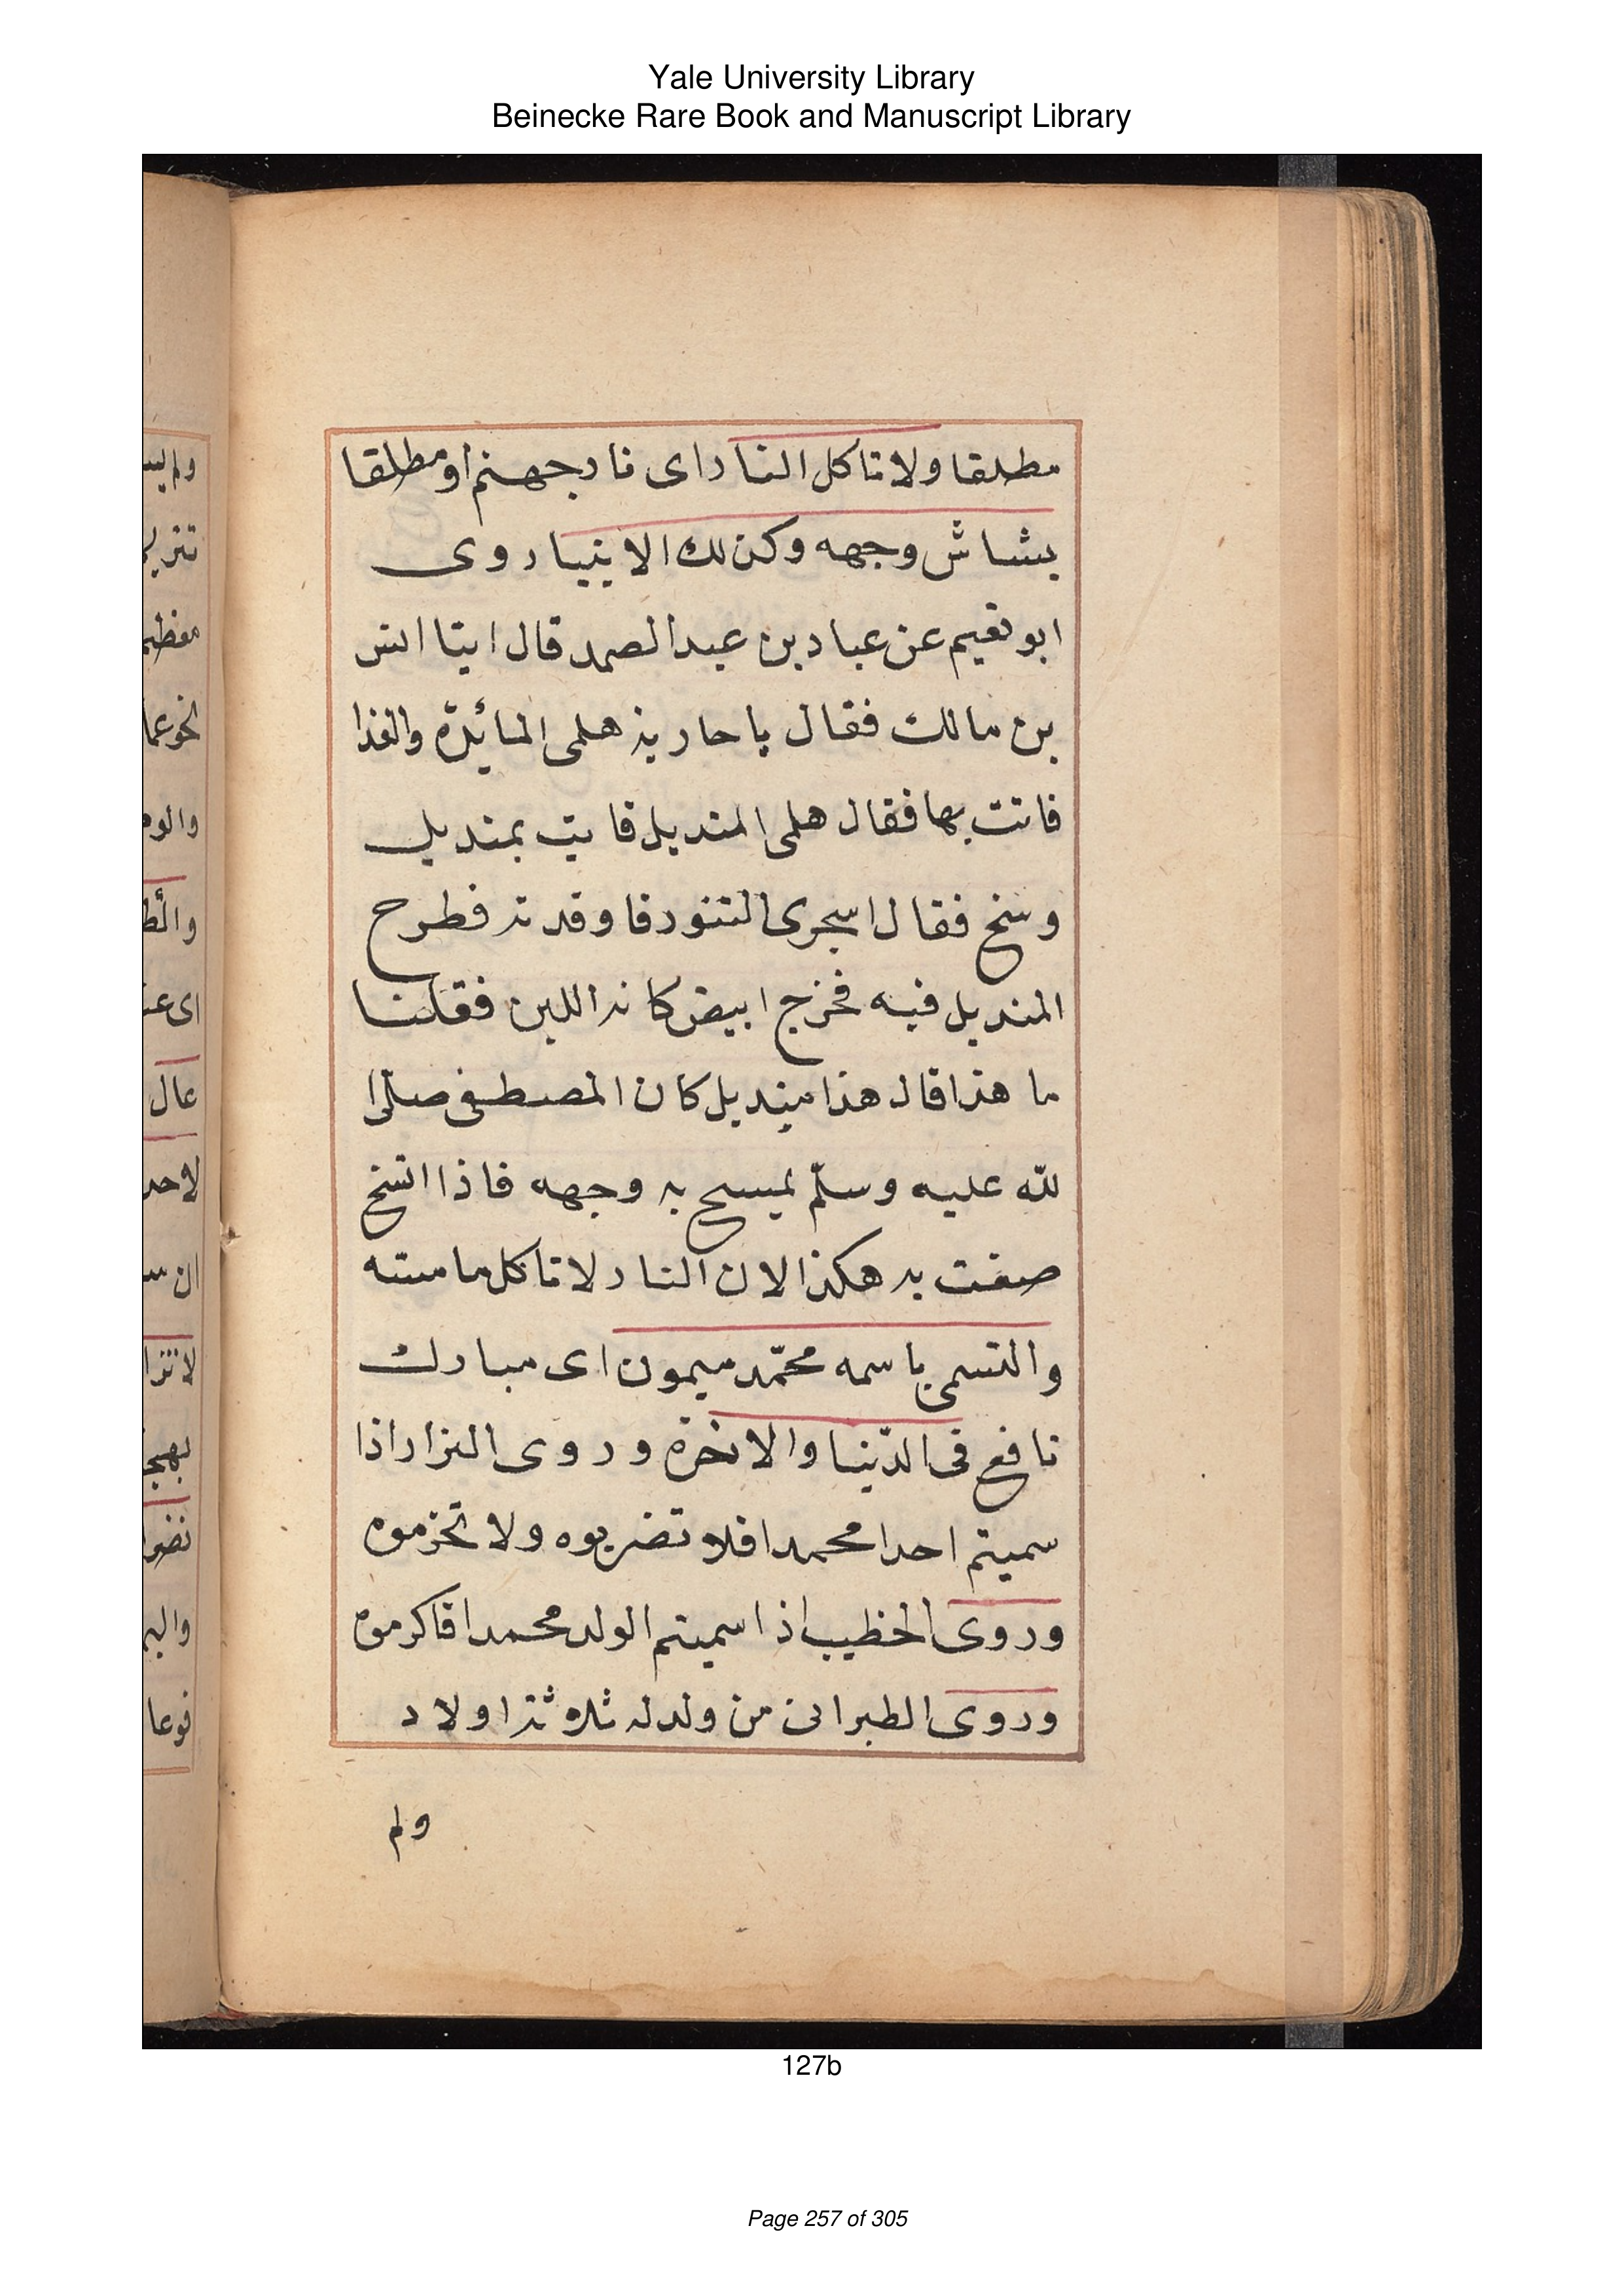 Yale University Library
Beinecke Rare Book and Manuscript Library
مطلقا ولا تاكل النار اى نار جهنم او مطلقا
بشاش وجهه وكذلك الانبيا روى
ابو نعيم عن عباد بن عبد الصمد قال اتينا انس
بن مالك فقال يا جارية هلمى المائدة والغذا
فاتت بها فقال هلمى المنديل فاتيت بمنديل
وسخ فقال اسجرى التنور فاوقدته فطرح
المنديل فيه فخرج ابيض كانه اللبن فقلنا
ما هذا قال هذا منديل كان المصطفى صلّى ا
للّه عليه وسلّم يمسح به وجهه فاذا اتسخ
صنعت به هكذا لان النار لا تاكل ما مسته
والتسمى باسمه محمّد ميمون اى مبارك
نافع فى الدّنيا والاخرة وروى البزار اذا
سميتم احدا محمدا فلا تضربوه ولا تحرموه
وروى الخطيب اذا سميتم الولد محمدا فاكرموه
وروى الطبرانى من ولد له ثلاثة اولاد
ولم
ولم
تنزيه
والو
اى عند
عال
لاحد
ان
فوعا
127b
Page 257 of 305